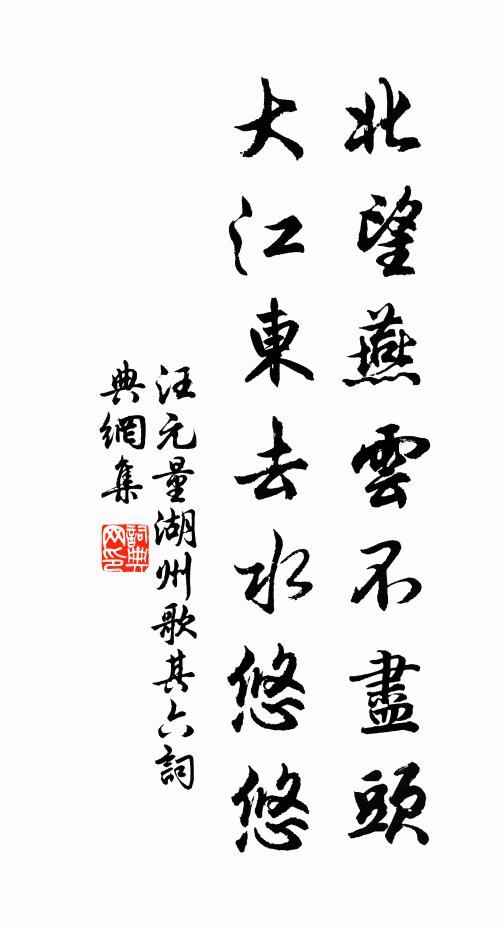 北望燕雲不盡頭
大江東去水悠悠
汪元量湖州歌其六詞
典網集
詞典網印